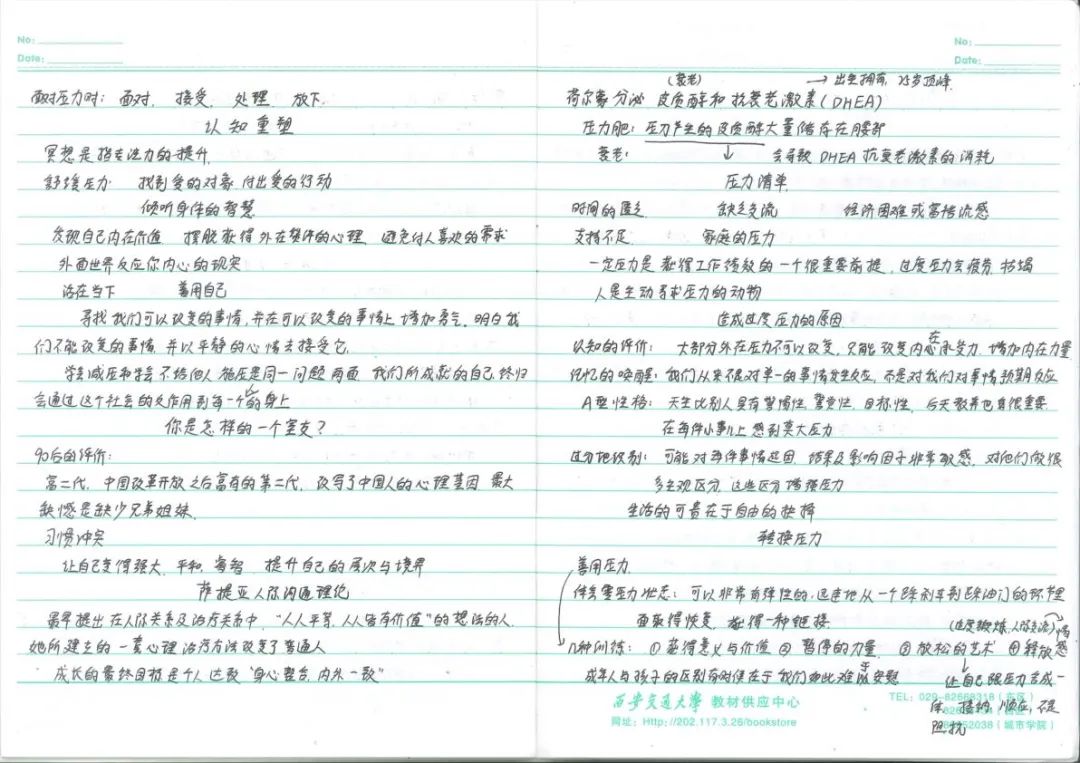 No:
Date:
面对压力时：面对、接受、处理、放下.
认知重塑
冥想是指专注力的提升.
舒缓压力 找到爱的对象 付出爱的行动
倾听身体的智慧
发现自己内在价值 摆脱获得外在赞许的心理 避免付人喜欢的需求
外面世界反应你内心的现实
活在当下 善用自己
寻找我们可以改变的事情，并在可以改变的事情上增加勇气. 明白我
们不能改变的事情 并以平静的心情去接受它.
学会减压和学会不给他人施压是同一问题两面 我们所成就的自己终归
会通过这个社会的反作用到每一个的身上
你是怎样的一个
90后的评价:
富二代，中国改革开放之后富有的第二代，改写了中国人的心理基因 最大
缺憾是缺少兄弟姐妹.
习惯冲突
让自己变得强大、平和、睿智 提升自己的层次与境界
萨提亚人际沟通理论
最早提出在人际关系及治疗关系中，“人人平等，人人皆有价值”的想法的人.
她所建立的一套心理治疗方法改变了普通人
成长的最终目标是个人达致“身心整合，内外一致”
No:
Date:
(衰老) → 出生拥有，25岁顶峰.
荷尔蒙分泌 皮质醇和抗衰老激素(DHEA)
压力肥：压力产生的皮质醇大量储存在腰部
衰老: ↓ 会导致 DHEA 抗衰老激素的消耗
压力清单.
时间的匮乏 缺乏交流 经济困难或富裕流感
支持不足 家庭的压力
一定压力是获得工作绩效的一个很重要前提，过度压力会疲劳 枯竭
人是主动寻求压力的动物
造成过度压力的原因
认知的评价: 大部分外在压力不可以改变，只能改变内在承受力 增加内在力量
记忆的唤醒：我们从来不是对单一的事情发生反应，而是对我们对事情预期反应
A型性格: 天生比别人具有警惕性、警觉性、目标性，后天教养也有很重要
在每件小事儿上感到莫大压力
过分地识别：可能对每件事情起因、结果及影响因子非常敏感，对他们做很
多主观区分，这些区分增强压力
生活的可贵在于自由的抉择
转换压力
善用压力.
体会零压力状态: 可以非常有弹性的，迅速地从一个踩刹车到踩油门的环境
而获得恢复，获得一种链接
(过度锻炼，人际交流)
几种训练: ①获得意义与价值 ②暂停的力量 ③放松的艺术 ④释放情感
成年人与孩子的区别有时候在于我们如此难于安慰
↓ 让自己跟压力合成一
体 接纳，顺应，不是
阻抗
西安交通大学 教材供应中心
网址：Http://202.117.3.26/bookstore
TEL: 029-82668318 (东区)
(城市学院)